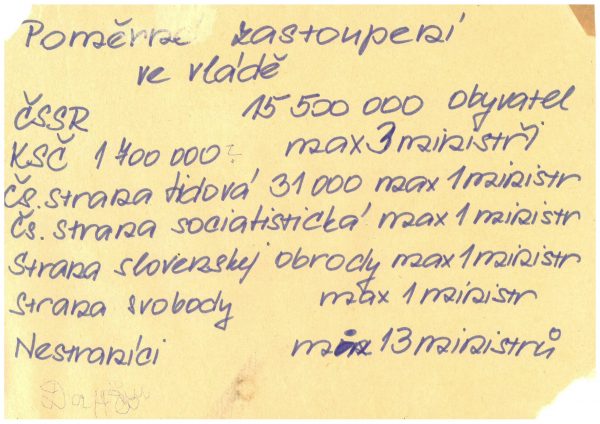 Poměrné zastoupení
ve vládě
ČSSR 15 500 000 obyvatel
KSČ 1 700 000 ? max 3 ministři
Čs. strana lidová 31 000 max 1 ministr
Čs. strana socialistická max 1 ministr
Strana slovenskej obrody max 1 ministr
strana svobody max 1 ministr
Nestraníci min 13 ministrů